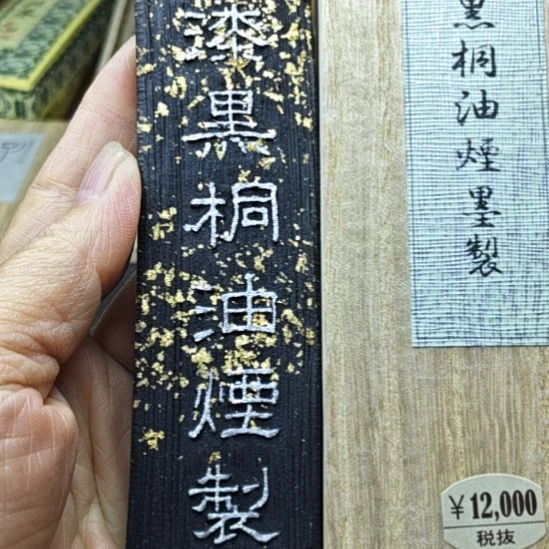 漆黒桐油煙製
黒桐油煙墨製
¥12,000
税抜